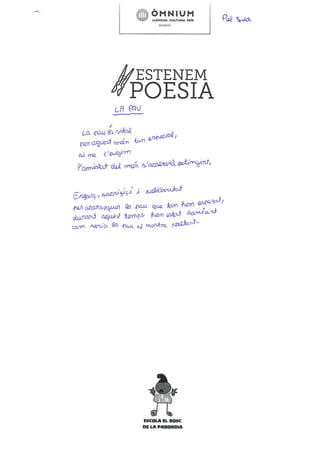 ÒMNIUM
LLENGUA CULTURA PAÍS
Pol
ESTENEM
POESIA
LA PAU
La pau és vital
per aquest món tan especial,
si no l'exigim
l'amistat del món s'acabarà extingint.
Esforç, sacrifici i solidaritat
per aconseguir la pau que tan hem esperat,
durant aquest temps hem estat somiant
com seria la pau al nostre voltant.
ESCOLA EL BOSC
DE LA PABORDIA